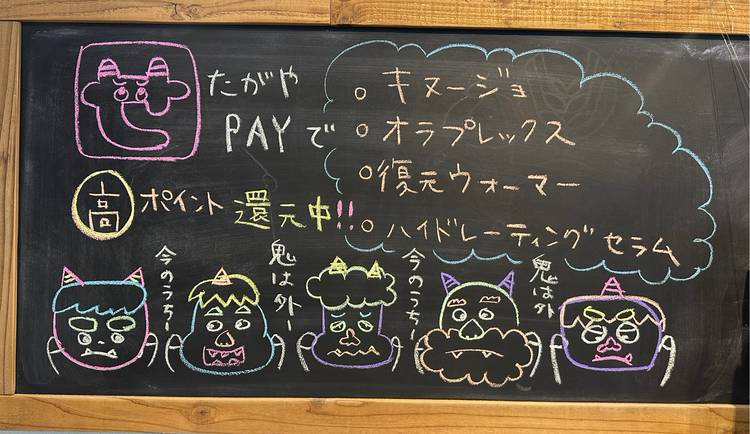 たがや
PAYで
高ポイント還元中!!
○ キヌージョ
○ オラプレックス
○ 復元ウォーマー
○ ハイドレーティングセラム
今のうちー
鬼は外ー
今のうちー
鬼は外